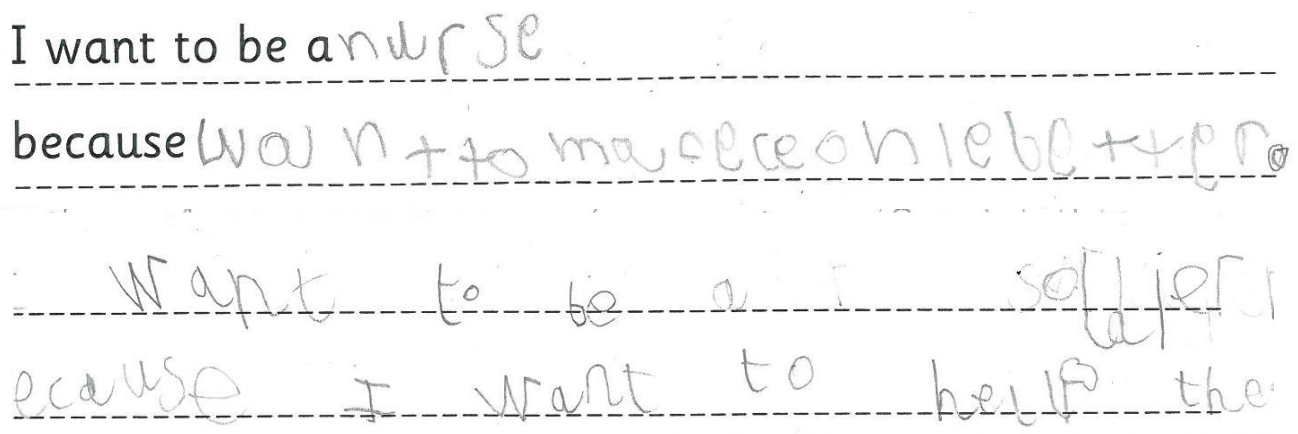 I want to be a nurse
because I wan t to mace ceonle better.
want to be a soldjer
ecause I want to help the